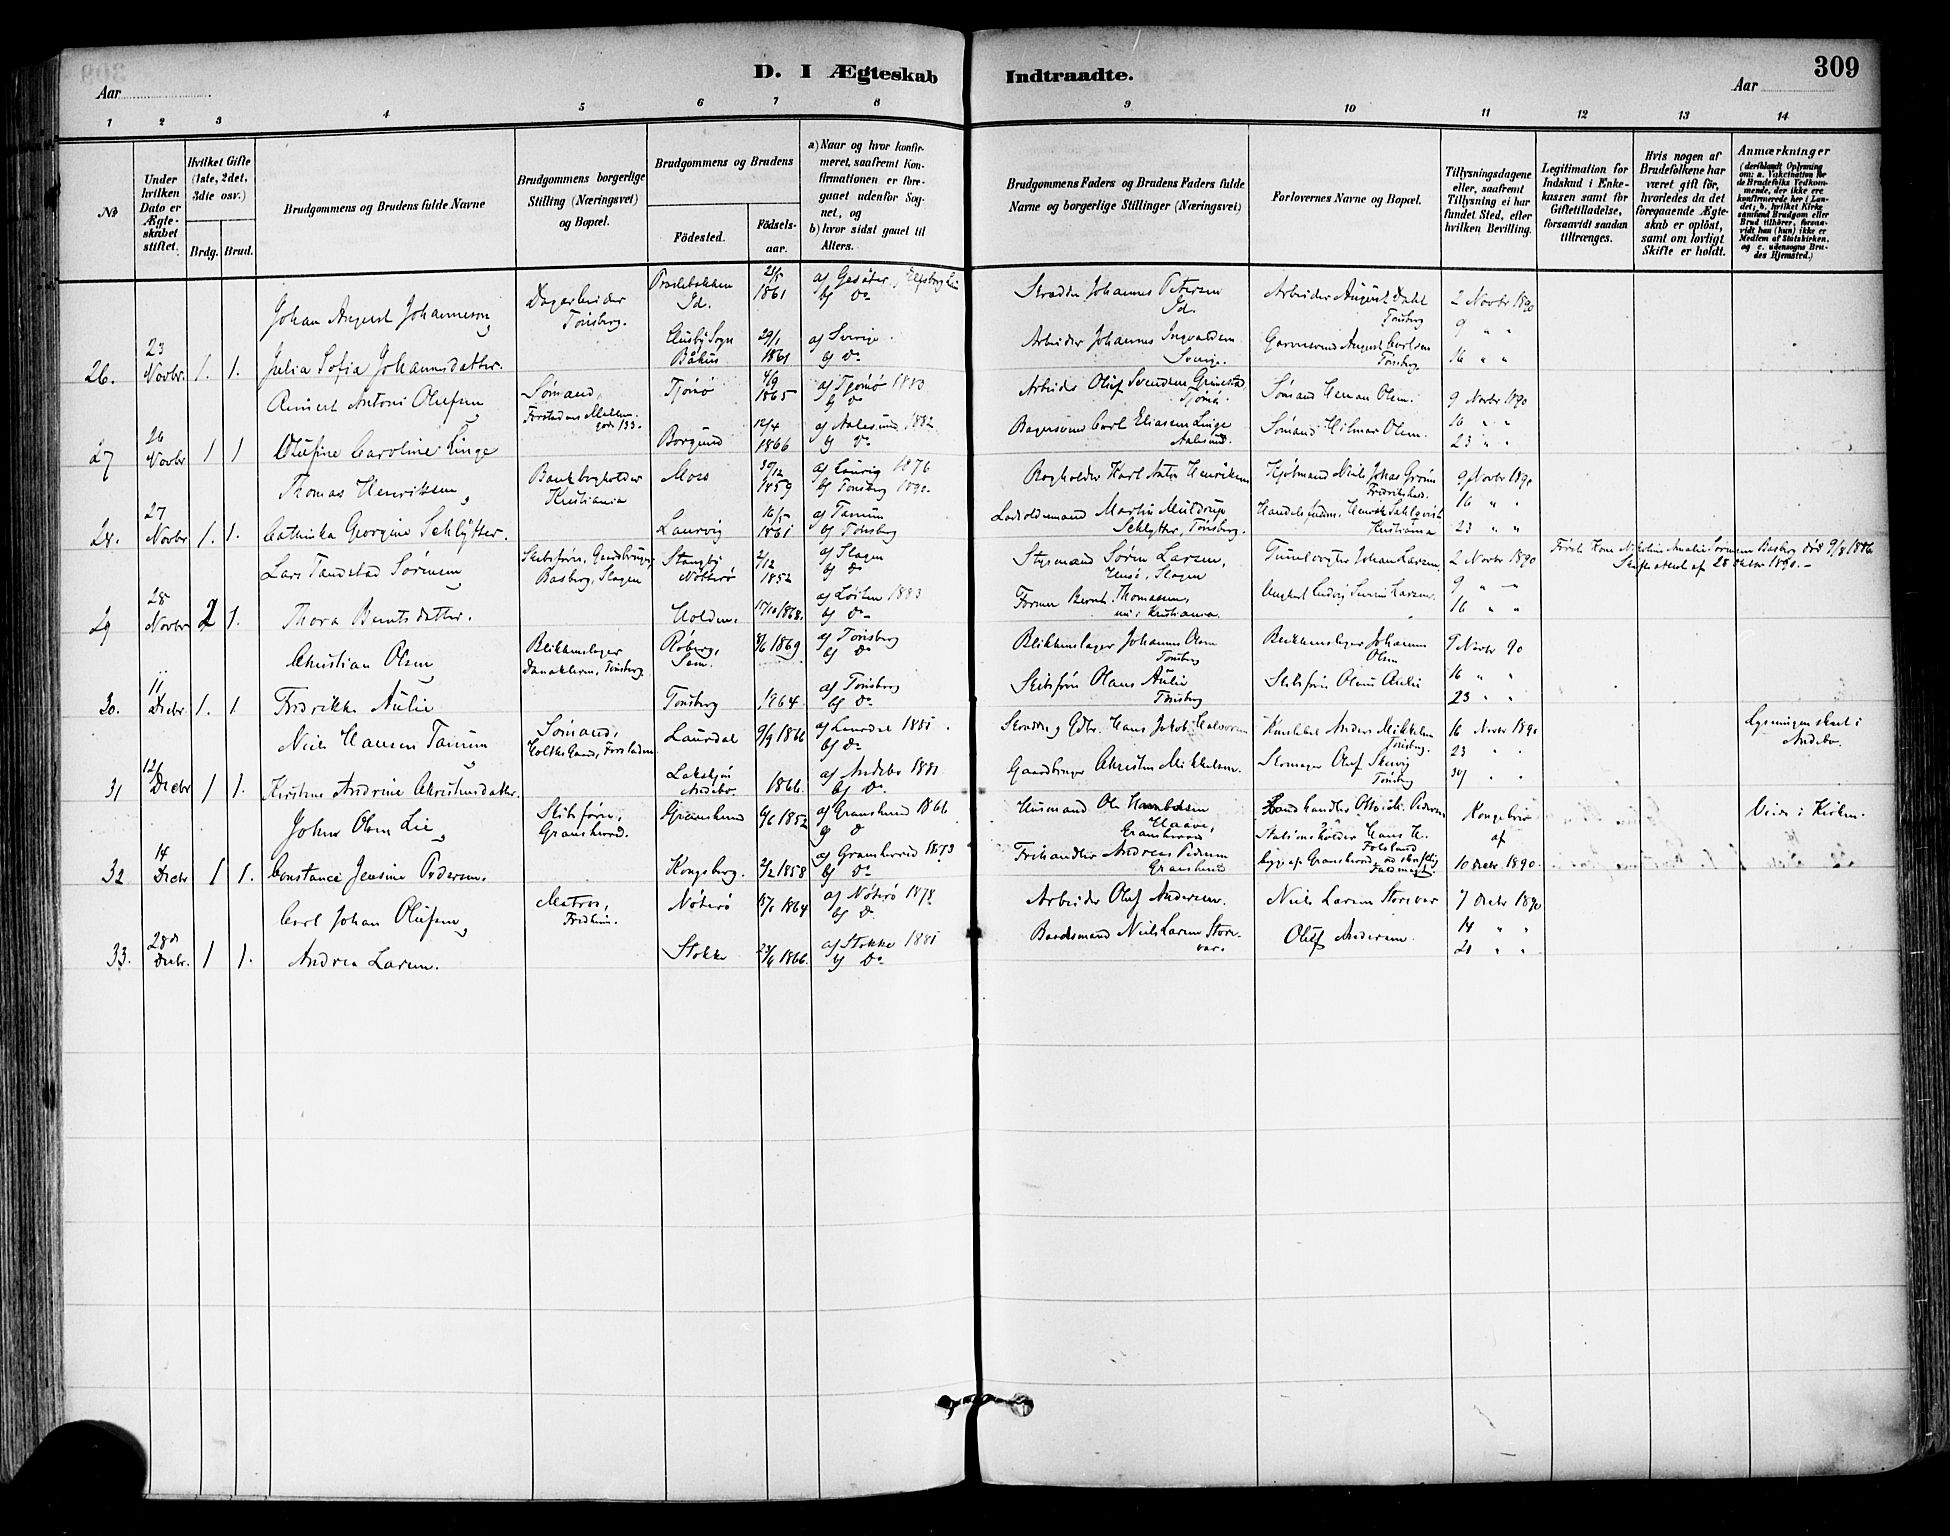 D. I Ægteskab Indtraadte. 309
Aar Aar
1 2 3 4 5 6 7 8 9 10 11 12 13 14
№
Under hvilken Dato er Ægteskabet stiftet.
Hvilket Gifte (1ste, 2det, 3dte osv.)
Brdg. Brud.
Brudgommens og Brudens fulde Navne
Brudgommens borgerlige Stilling (Næringsvei) og Bopæl.
Brudgommens og Brudens
Födested. Födselsaar.
a) Naar og hvor konfirmeret, saafremt Konfirmationen er foregaaet udenfor Sognet, og
b) hvor sidst gaaet til Alters.
Brudgommens Faders og Brudens Faders fulde Navne og borgerlige Stillinger (Næringsvei)
Forlovernes Navne og Bopæl.
Tillysningsdagene eller, saafremt Tillysning ei har fundet Sted, efter hvilken Bevilling.
Legitimation for Indskud i Ænkekassen samt for Giftetilladelse, forsaavidt saadan tiltrænges.
Hvis nogen af Brudefolkene har været gift för, hvorledes da det foregaaende Ægteskab er oplöst, samt om lovligt Skifte er holdt.
Anmærkninger
(deriblandt Oplysning om: a. Vakcination for de Brudefolks Vedkommende, der ikke ere konfirmerede her i Landet; b. hvilket Kirkesamfund Brudgom eller Brud tilhörer, forsaavidt han (hun) ikke er Medlem af Statskirken, og c. udensogns Brudes Hjemsted.)
Johan August Johanneson Dagarbeider Tönsberg. Id. 1861 Skrædder Johannes Petersen Id. Arbeider August Dahl Tönsberg 2 Novbr 1890
26. 23 Novbr. 1. 1. Julia Sofia Johannsdatter. Båhus 29/1 1861 af Sverige. bj do Arbeider Johannes Ingvaldsen Sverig. August Carlsen Tönsberg 9 " " 16 " "
Reinert Antoni Olufsen Sömand, Tjömö 4/9 1865 a Tjömö 1880 bj do Arbeider Oluf Svendsen Grimestad Tjömö. Sömand Herman Olsen. 9 Novbr 1890
27 26 Novbr 1 1 Olufine Caroline Linge Borgund 12/4 1866 af Aalesund 1882 bj do Bagersvend Carl Eliasen Linge Aalesund. Sömand Hilmar Olsen. 16 " " 23 " "
Thomas Henriksen Bankbogholder Kristiania Moss 30/12 1859 af Laurvig 1876 bj Tönsberg 1890. Bogholder Karl Anton Henriksen Kjöbmand Niels Johas Grönn Fredrikshald. 9 Novbr 1890
28. 27 Novbr 1. 1. Cathinka Georgine Schlytter. Laurvig 16/5 1861 af Tanum bj Tönsberg Martin Schlytter, Tönsberg. Henrik Sahlqvist Kristiania 16 " " 23 " "
Lars Tandstad Sörensen Skibsförer, Gaardbruger, Basberg, Slagen Stangby Nötterö 2/12 1852 af Slagen bj do Styrmand Sören Larsen, Slagen Johan Larsen. 2 Novbr 1890 Förste Kone Nikoline Amalie Sörensen Basberg död 9/8 1886 Skifteattest af 28 1890.
29 28 Novbr 2 1. Thora Berntsdatter. Holden. 17/10 1868. af Löiten 1883 bj do Former Bernt Thomasen, nu i Kristiania Ludvig Severin Larsen. 9 " " 16 " "
Christian Olsen Blikkenslager Tönsberg. Röberg, Sem. 8/6 1869 af Tönsberg bj do Blikkenslager Johannes Olsen Tönsberg Blikkenslager Johannes Olsen 9 Novbr 90
30. 11 Decbr. 1. 1. Fredrikke Aulie Tönsberg 1864. af Tönsberg bj do Skibsförer Olaus Aulie Tönsberg Skibsförer Olaus Aulie 16 " " 23 " "
Niels Hansen Tanum Sömand, Holths Gaard, Forstaden Laurdal 9/9 1866 af Laurdal 1881 bj do Hans Jakob Halvorsen Konstabel Anders Mikkelsen Tönsberg. 16 Novbr 1890 Lysningen skeet i Andebo.
31 12 Decbr 1 1. Kirstine Andrine Christensdatter. Andebo. 1866. af Andebo 1881 bj do Gaardbruger Christen Mikkelsen. Skomager Olaf Skuvig Tönsberg 23 " " 30 " "
Johns Olsen Lie Skibsförer, Gransherred. Gransherred 6/6 1852 af Gransherred 1866 bj do Husmand Ole Haave, Gransherred Landhandler Pedersen Stationsholder Hans H. Folsland Kongebrev af Viede i Kirken.
32 14 Decbr 1 1. Constance Jensine Pedersen. Kongsberg. 2/2 1858 af Gransherred 1873 bj do Frihandler Andreas Pedersen Gransherred begge af Gransherred, skriftlig Fuldmagt. 10 Decbr 1890.
Carl Johan Olufsen Matros, Nöterö 1864 af Nöterö 1878 bj do Arbeider Oluf Andersen. Niels Larsen Storevar 7 Decbr 1890
33. 28de Decbr. 1 1. Andrea Larsen. Stokke 1866. af Stokke 1881 bj do Baadsmand Niels Larsen Storevar. Oluf Andersen. 14 " " 21 " "